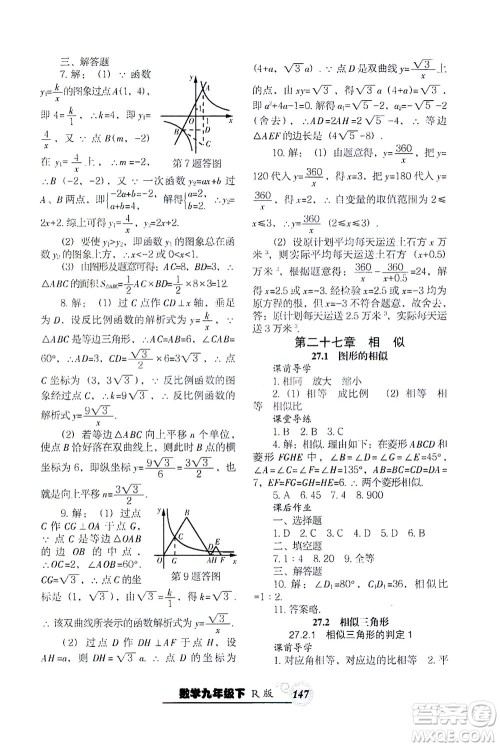 三、解答题
7. 解：(1) ∵ 函数
y₁=k/x的图象过点 A(1，
4)，∴4=k/1，∴k=4，即 y₁
=4/x. 又∵点 B(m，-2) 在
y₁=4/x上，∴m=-2，
∴B(-2，-2). 又∵一次函数 y₂=ax+b 过
A、B两点，∴{-2a+b=-2，a+b=4. ∴{a=2，b=2. ∴y₂=
2x+2. 综上可得 y₁=4/x，y₂=2x+2.
(2) 要使 y₁>y₂，即函数 y₁的图象总在函
数 y₂的图象上方，∴x<-2 或 0<x<1.
(3) 由图形及题意可得：AC=8，BD=3，
第7题答图
8. 解：(1) 过点 C 作 CD⊥x 轴，垂
足为 D，设反比例函数的解析式为 y=k/x，
∵△ABC 是等边三角形，∴AC=AB=6，
∠CAB=60°，∴AD=3，CD=√3/2×6=3√3，∴点
C 坐标为(3，3√3). ∵反比例函数的图象
经过点 C，∴k=9√3，∴反比例函数的解析
式为 y=9√3/x.
(2) 若等边△ABC 向上平移 n 个单位，
使点 B 恰好落在双曲线上，则此时 B 点的横
坐标为 6，即纵坐标 y=9√3/6=3√3/2，∴n=3√3/2.
9. 解：(1) 过点
C 作 CG⊥OA 于点
G，∵点 C 是等边
△OAB 的边 OB 的中
点，∴OC=2，∠AOB=60°，
第9题答图
∴OG=1，CG=√3，∴点 C 的坐标是(1，
√3)，由√3=k/1，得 k=√3，∴该双曲线所
表示的函数解析式为 y=√3/x.
(2) 过点 D 作 DH⊥AF 于点 H，设
AH=a，则 DH=√3a. ∴点 D 的坐标为
(4+a，√3a). ∵点 D 是双曲线 y=√3/x上
的点，由 xy=√3，得√3a(4+a)=√3，
即 a²+4a-1=0，解得 a₁=√5-2，a₂=-√5-2
(舍去)，∴AD=2AH=2√5-4，∴等边
△AEF 的边长是(4√5-8).
10. 解：(1) 由题意得，y=360/x，把 y=
120 代入 y=360/x，得 x=3，把 y=180 代入 y
=360/x，得 x=2，∴自变量的取值范围为2≤x
≤3.
(2) 设原计划平均每天运送土石方 x 万
米³，则实际平均每天运送土石方(x+0.5)万
米³. 根据题意得：360/x-360/(x+0.5)=24，解得
x=2.5 或 x=-3. 经检验 x=2.5 或 x=-3 均为
原方程的根，但 x=-3 不符合题意，故舍去.
答：原计划每天运送 2.5 万米³，实际每天运
送 3 万米³.
第二十七章 相 似
27.1 图形的相似
课前导学
1. 相同 放大 缩小
2. (1) 相等 成比例 (2) 相等 相
等 相似比
课堂导练
4. 解：相似. 理由如下：在菱形 ABCD 和
菱形 FGHE 中，∠B=∠D=∠G=∠E=45°，
∠A=∠C=∠F=∠H=135°，AB=BC=CD=DA=
6，EF=FG=GH=HE=6.
5. A 6. 45 7. 4 8. 900
课后作业
一、选择题
1. D 2. D 3. C 4. D 5. A 6. C
二、填空题
7. 1：4 8. 20 9. 全等
三、解答题
10. ∠G=81°，∠F=118°，x=28，相似比为
1：2.
11. 答案略.
27.2 相似三角形
27.2.1 相似三角形的判定 1
课前导学
1. 对应角相等，对应边的比相等
数学九年级下 R 版 147